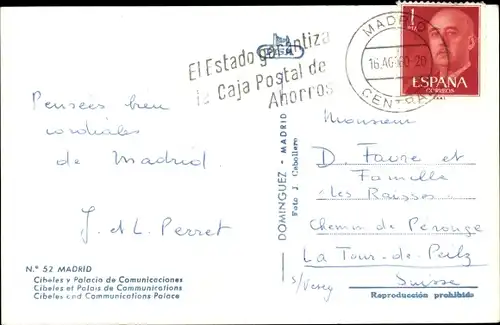 El Estado garantiza
la Caja Postal de
Ahorros
MADRID
16.AGO.60-20
CENTRAL
1
PTA
ESPAÑA
CORREOS
Pensées bien
cordiales
de Madrid.
J. et L. Perret
Monsieur
D. Favre et
Famille
"Les Raisses"
Chemin de Péronge
La Tour-de-Peilz
s/Vevey
Suisse
DOMINGUEZ - MADRID
Foto J. Caballero
N.° 52 MADRID
Cibeles y Palacio de Comunicaciones
Cibeles et Palais de Communications
Cibeles and Communications Palace
Reproducción prohibida